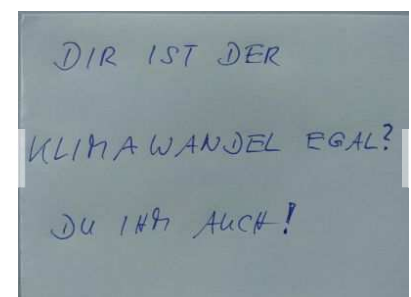 DIR IST DER
KLIMAWANDEL EGAL?
DU IHM AUCH!